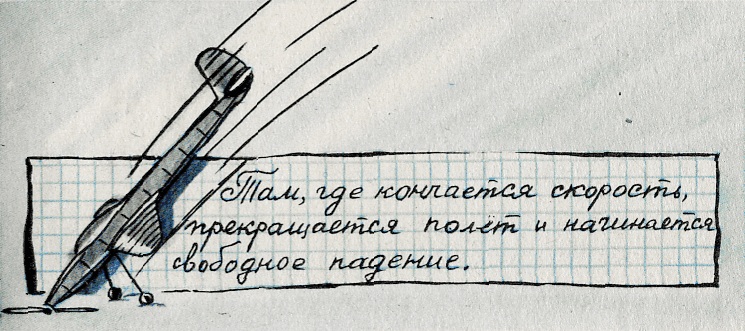 Там, где кончается скорость,
прекращается полёт и начинается
свободное падение.